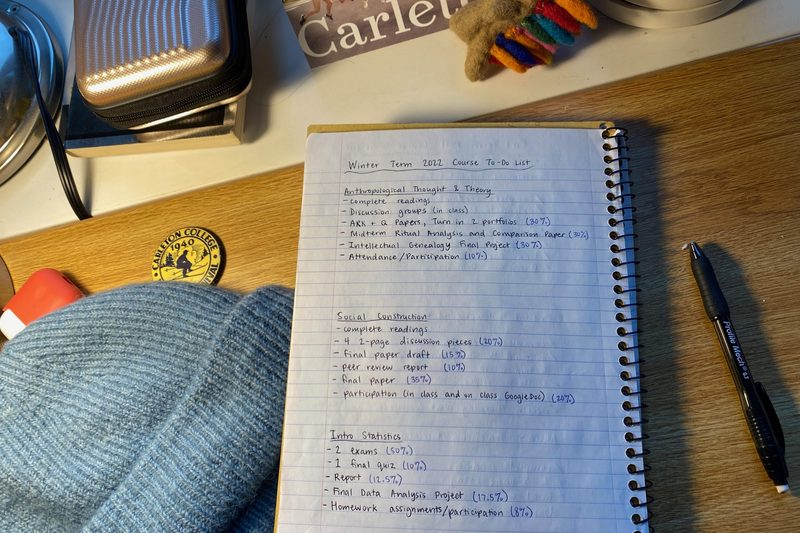 Carlet
CARLETON COLLEGE
1940
Winter Term 2022 Course To-Do List
Anthropological Thought & Theory
- complete readings
- Discussion groups (in class)
- ARK + Q Papers, Turn in 2 portfolios (30%)
- Midterm Ritual Analysis and Comparison Paper (30%)
- Intellectual Genealogy Final Project (30%)
- Attendance/Participation (10%)
Social Construction
- complete readings
- 4 2-page discussion pieces (20%)
- final paper draft (15%)
- peer review report (10%)
- final paper (35%)
- participation (in class and on class Google Doc) (20%)
Intro Statistics
- 2 exams (50%)
- 1 final quiz (10%)
- Report (12.5%)
- Final Data Analysis Project (17.5%)
- Homework assignments/participation (8%)